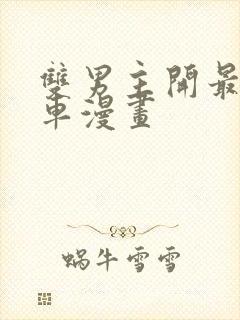 雙男主開最
車漫畫
蝸牛雪雪